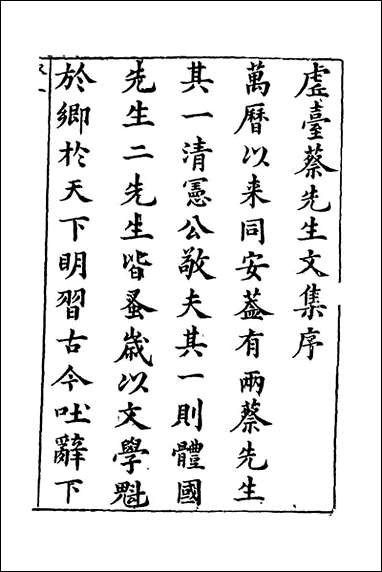 虛臺蔡先生文集序
萬曆以来同安葢有兩蔡先生
其一清憲公敬夫其一則體國
先生二先生皆蚤歲以文學魁
於鄉於天下明習古今吐辭下